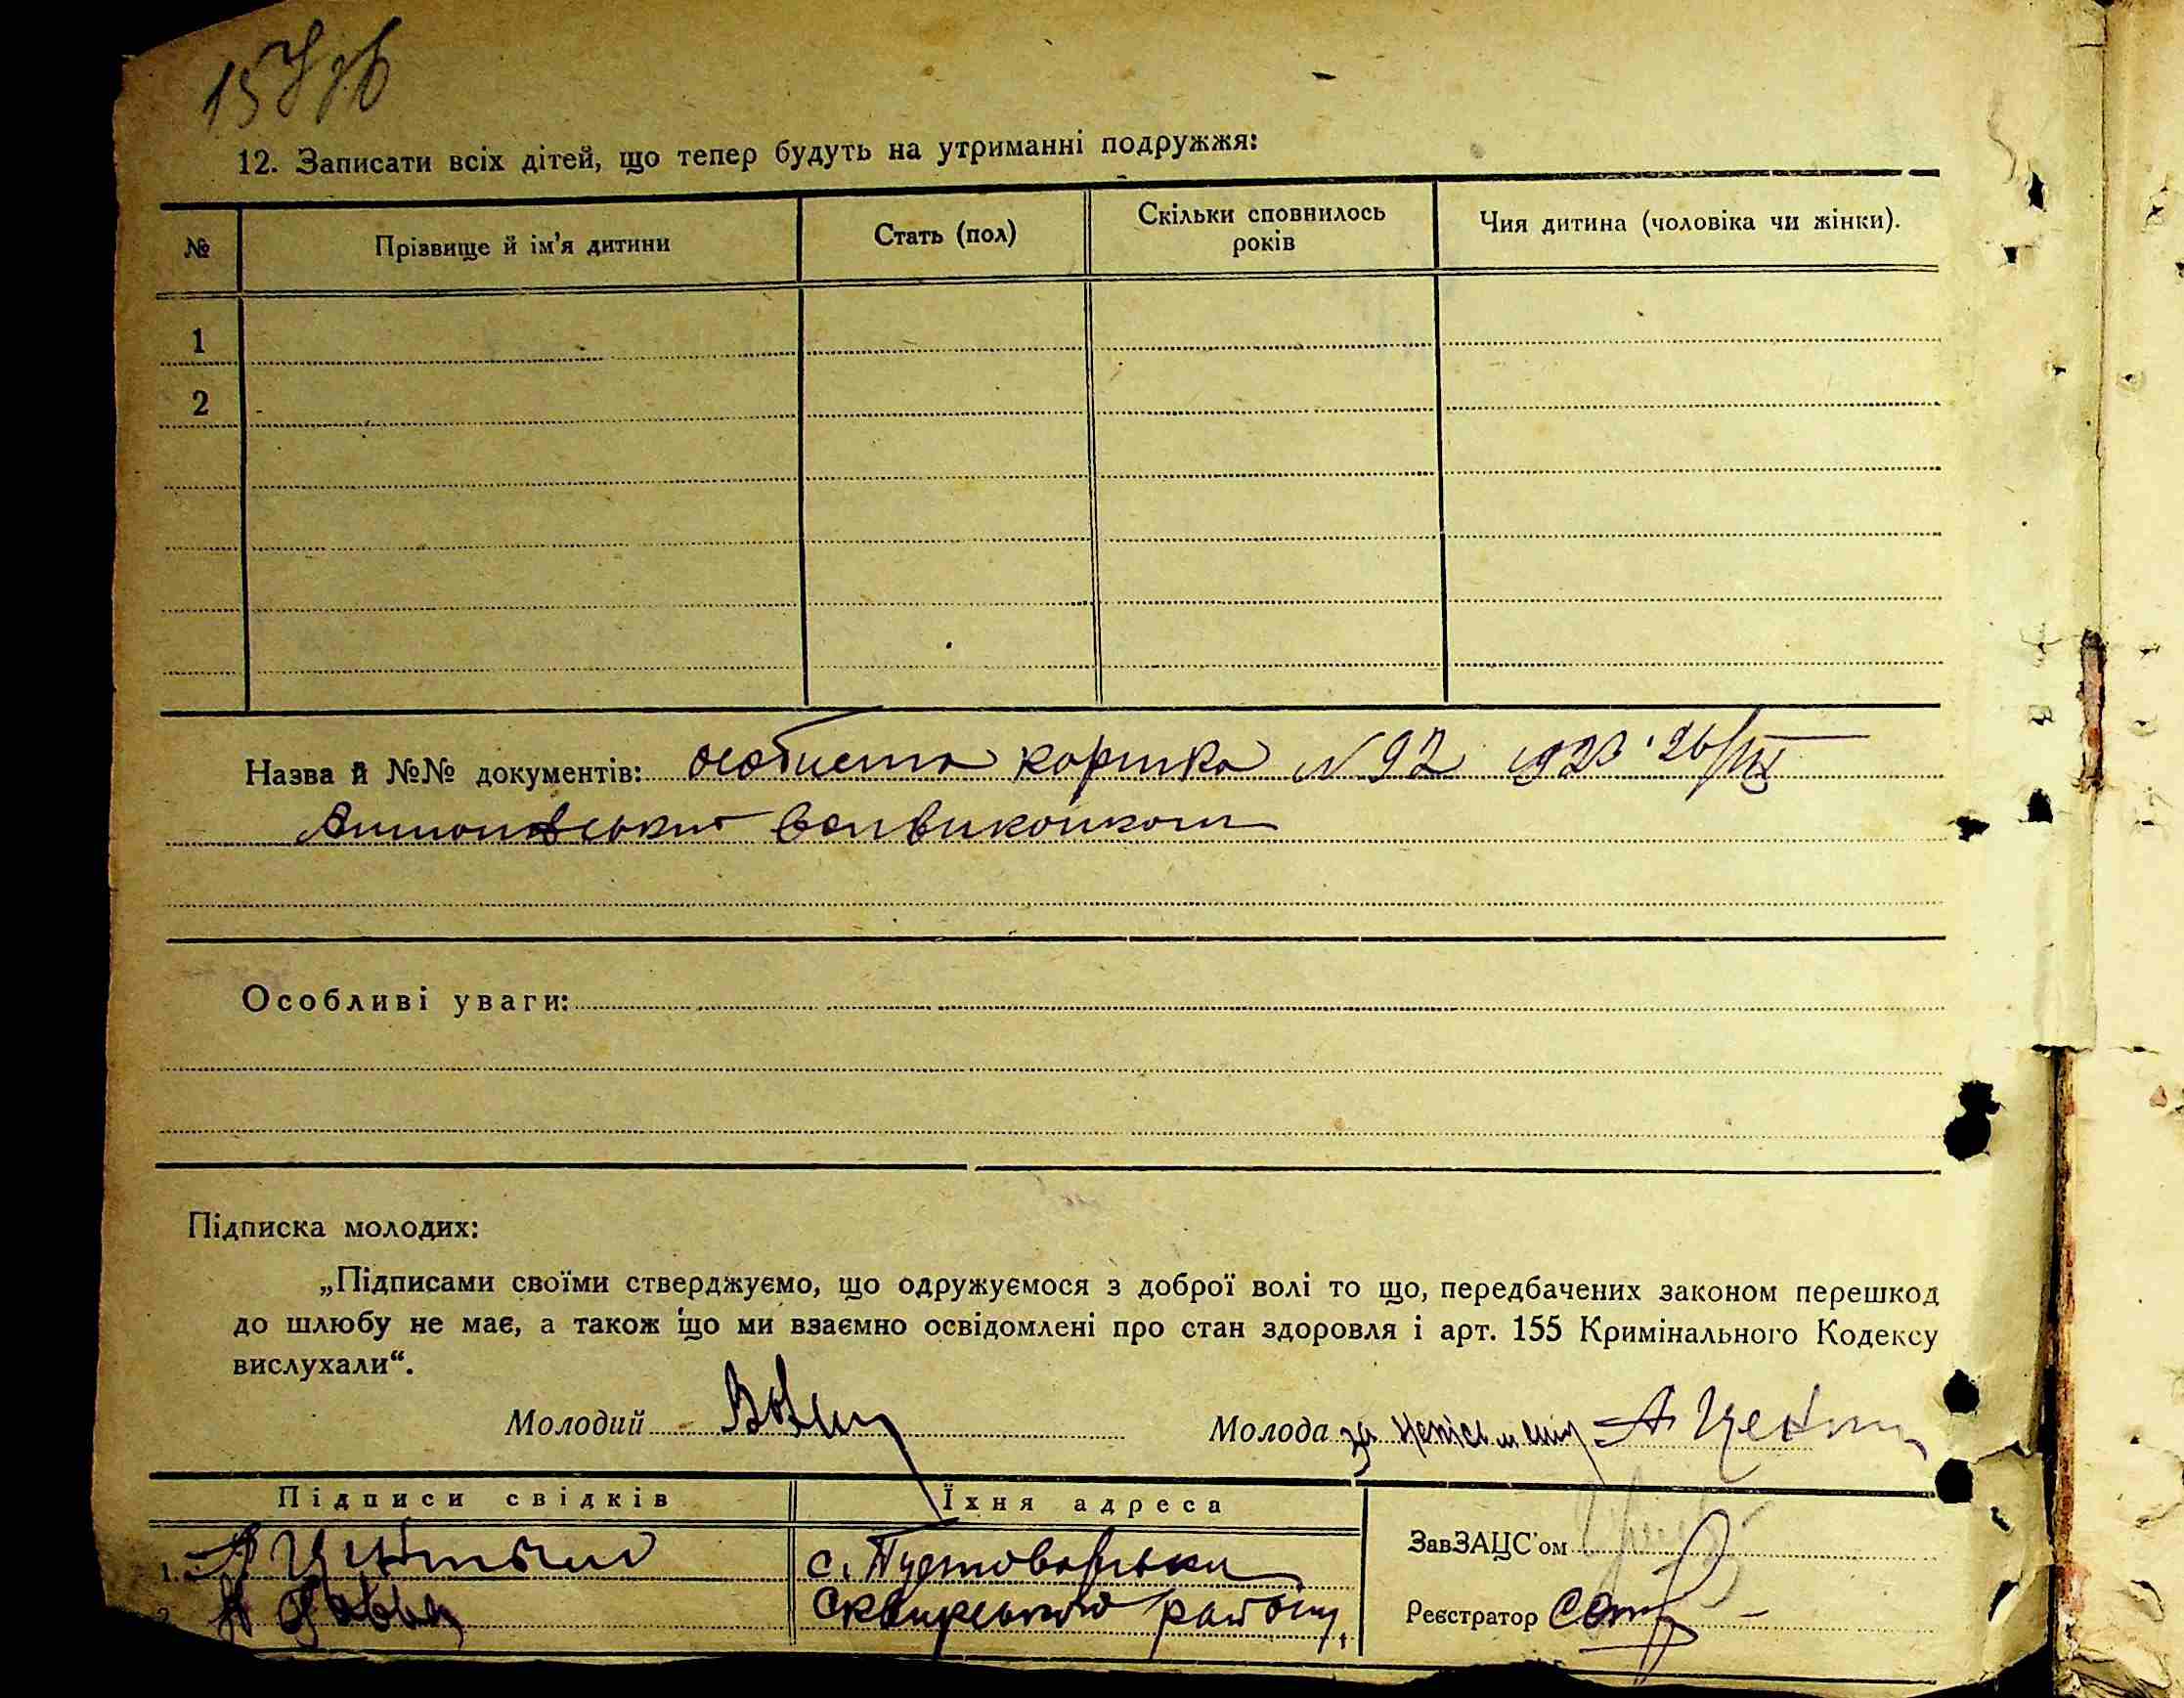 12. Записати всіх дітей, що тепер будуть на утриманні подружжя:
№ Прізвище й ім'я дитини Стать (пол) Скільки сповнилось років Чия дитина (чоловіка чи жінки).
1
2
Назва й №№ документів: особиста картка N 92 1923 26/III
Антонівським волвиконком
Особливі уваги:
Підписка молодих:
„Підписами своїми стверджуємо, що одружуємося з доброї волі то що, передбачених законом перешкод
до шлюбу не має, а також що ми взаємно освідомлені про стан здоровля і арт. 155 Кримінального Кодексу
вислухали“.
Молодий Молода за неписьмену А
Підписи свідків Їхня адреса
ЗавЗАЦС'ом
1. А с. Пустоварівки
2. Сквирського району
Реєстратор